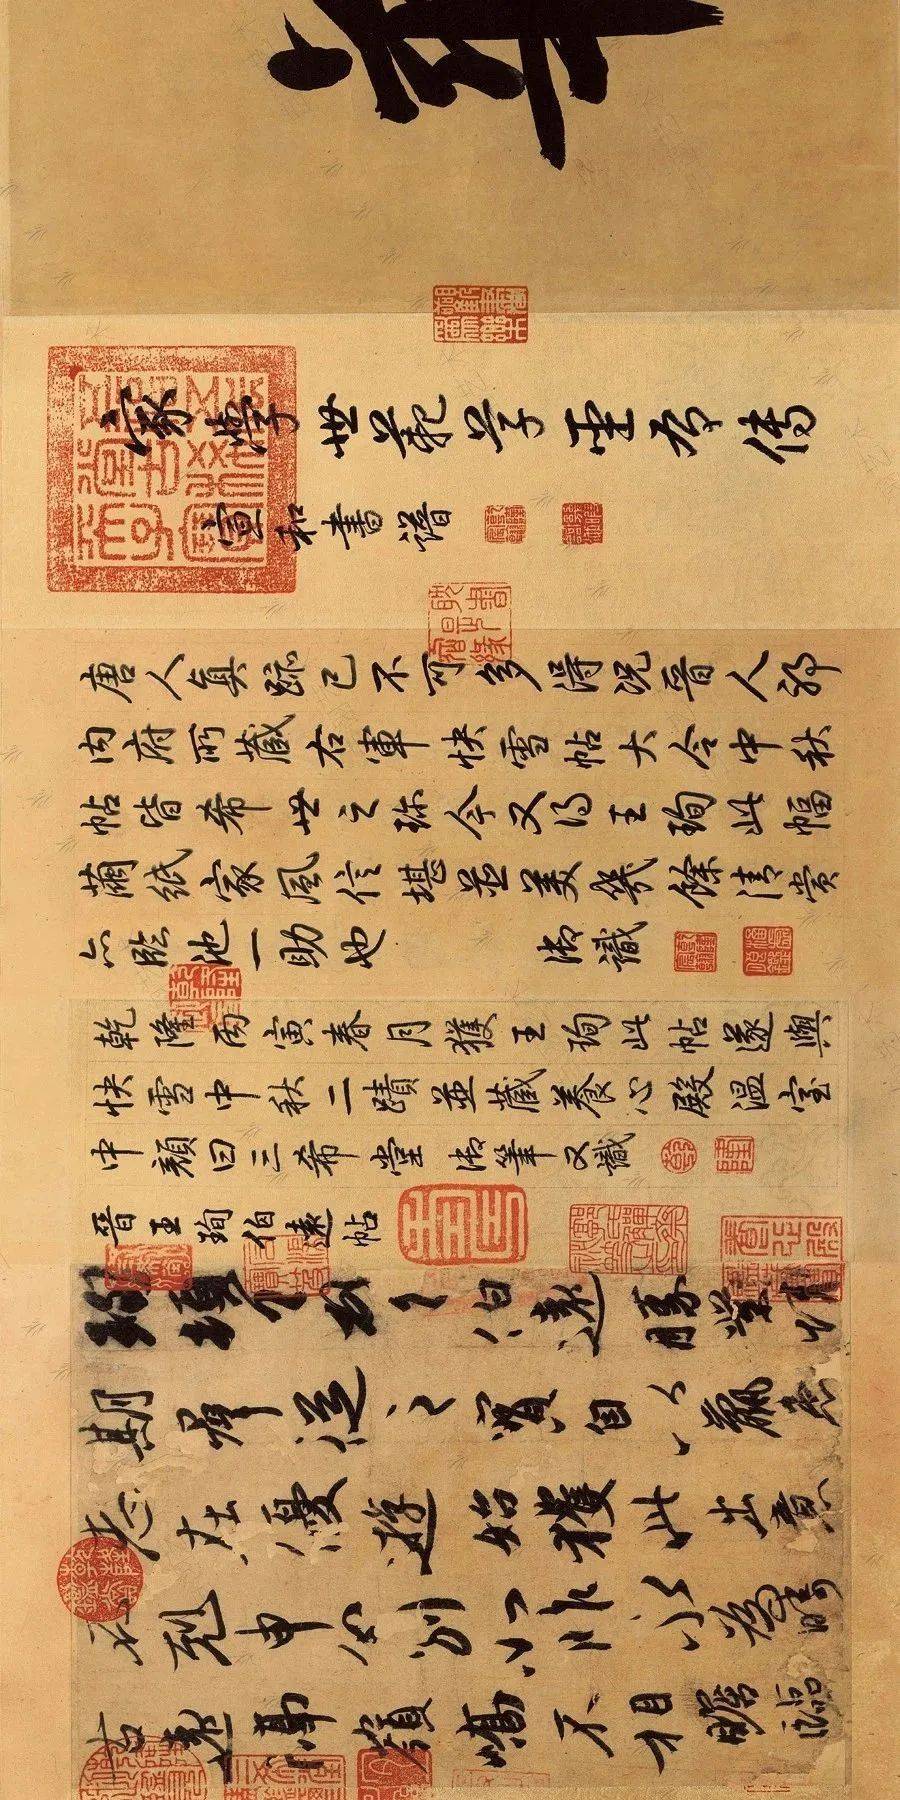 家學世範草聖有傳
宣和書譜
唐人真跡已不可多得況晉人耶
內府所藏右軍快雪帖大令中秋
帖皆希世之珍今又得王珣此幅
繭紙家風信堪並美幾餘清賞
亦臨池一助也 御識
乾隆丙寅春月獲王珣此帖遂與
快雪中秋二蹟並藏養心殿溫室
中顏曰三希堂 御筆又識
晉王珣伯遠帖
珣頓首頓首伯遠勝業情
期群從之寶自以羸患
志在優游始獲此出意
不剋申分別如昨永為疇
古遠隔嶺嶠不相瞻臨